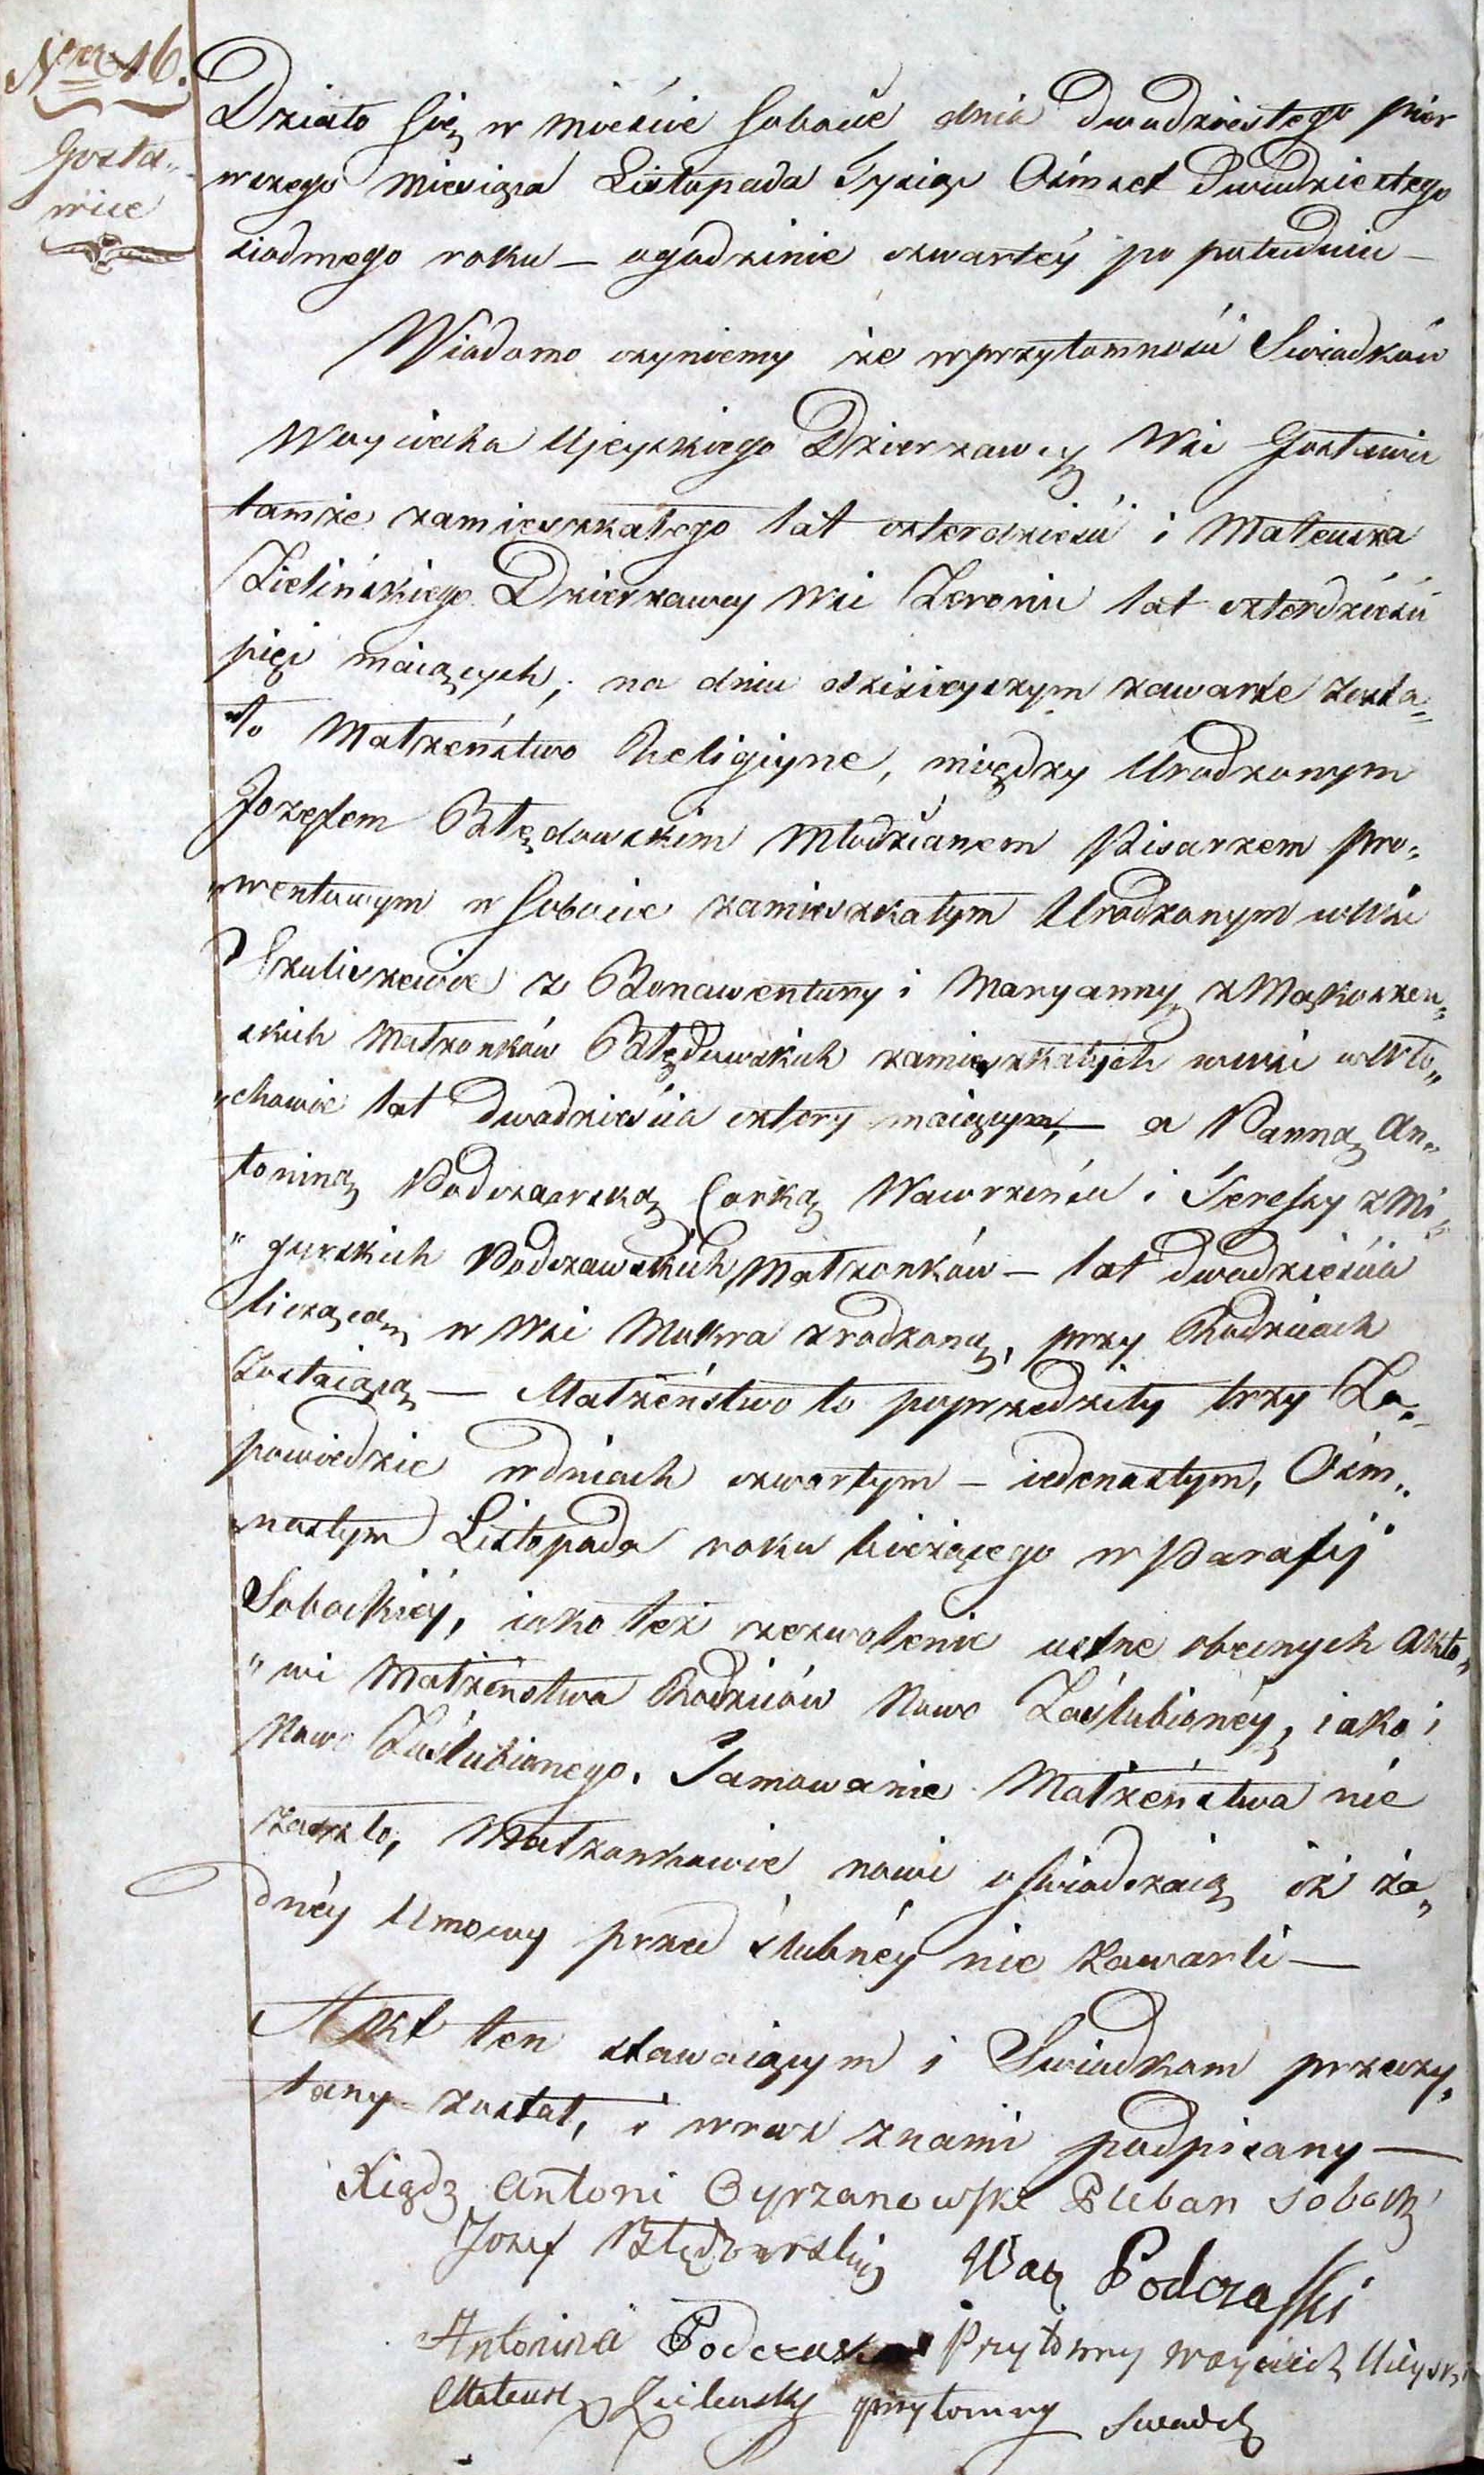 Nro 16.
Gosta„
wice
Działo się w mieście Sobocie dnia Dwudziestego pier
wszego Miesiąca Listopada Tysiąc Ośmset Dwudziestego
siodmego roku — ogodzinie czwartey po południu —
Wiadomo czyniemy że wprzytomności Swiadków
Woyciecha Ujeyskiego Dzierzawcy Wsi Gostawic
tamże zamieszkałego lat czterdzieści i Mateusza
Zielińskiego Dzierzawcy Wsi Zeronic lat czterdzieści
pięć maiących; na dniu dzisieyszym zawarte zosta„
ło Małżeństwo Religiyne, między Urodzonym
Jozefem Błędowskim Młodzianem Pisarzem Pro„
„wentowym w Sobocie zamieszkałym Urodzonym wWsi
Szuliszewice z Bonawentury i Maryanny z Mąkoszen„
skich Małżonków Błędowskich zamieszkałych wwsi wWło„
„chowie lat Dwadzieścia cztery maiącym, — a Panną An„
toniną Podczaską Corką Wawrzeńca i Teressy z Mi„
„gurskich Podczaskich Małżonków — lat dwadzieścia
liczącą, w Wsi Mokra zrodzoną, przy Rodzicach
Zostaiącą — Małżeństwo to poprzedziły trzy Za„
powiedzie wdniach czwartym — iedenastym, Ośm„
nastym Listopada roku bieżącego w Parafij
Sobockiey, iako też zezwolenie ustne obecnych Akto„
„wi Małżeństwa Rodziców Nowo Zaślubioney, iako i
Nowo Zaślubionego. Tamowanie Małżeństwa nie
zaszło, Małżonkowie nowi oswiadczaią iż ża„
dnéy Umowy przed ślubnéy nie Zawarli —
Akt ten stawaiącym i Swiadkom przeczy„
tany został, i wraz znami podpisany —
Xiądz Antoni Cyrzanowski Pleban Sobocki
Jozef Błędowski Waw Podczasski
Antonina Podczaska Przytomny Woyciech Uieyski
Mateusz Zielinsky przytomny Swiadek